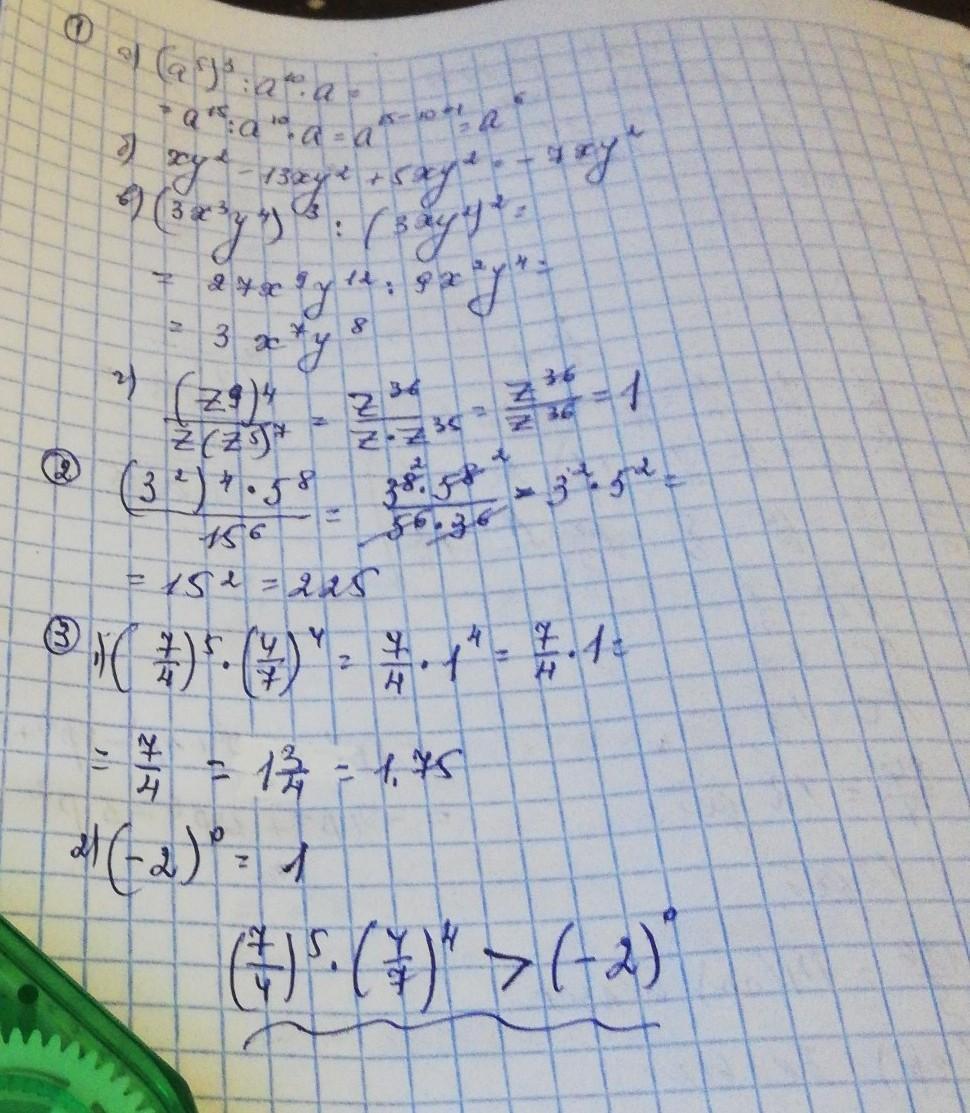 ① а) (a⁵)³ : a¹⁰ · a =
= a¹⁵ : a¹⁰ · a = a¹⁵⁻¹⁰⁺¹ = a⁶
б) xy² - 13xy² + 5xy² = - 7xy²
в) (3x³y⁴)³ : (3xy²)² =
= 27x⁹y¹² : 9x²y⁴ =
= 3 x⁷y⁸
г) (z⁹)⁴/z(z⁵)⁷ = z³⁶/z · z³⁵ = z³⁶/z³⁶ = 1
② (3²)⁴ · 5⁸/15⁶ = 3⁸ ² · 5⁸ ²/5⁶ · 3⁶ = 3² · 5² =
= 15² = 225
③ 1) (7/4)⁵ · (4/7)⁴ = 7/4 · 1⁴ = 7/4 · 1 =
= 7/4 = 1 3/4 = 1.75
2) (-2)⁰ = 1
(7/4)⁵ · (4/7)⁴ > (-2)⁰